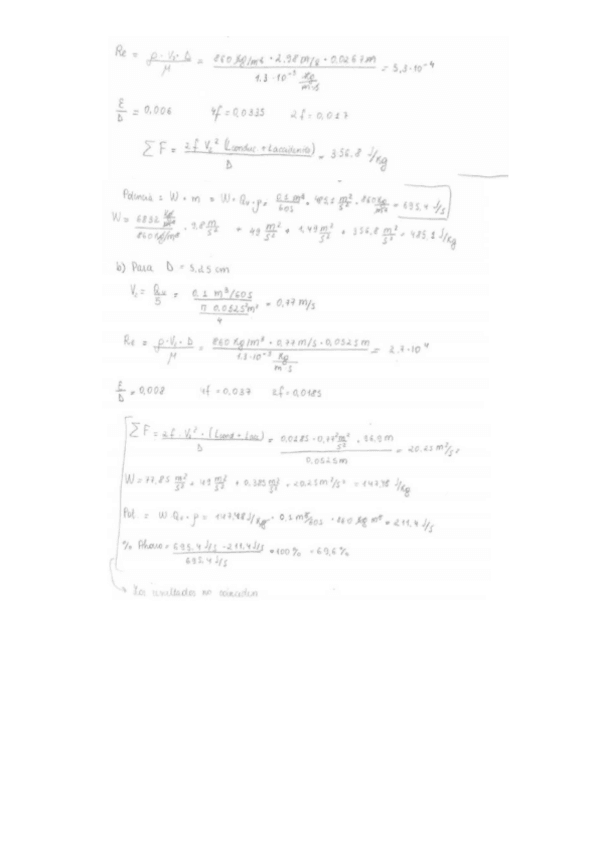 Re = ρ·V₂·D / μ = 860 Kg/m³ · 2.98 m/s · 0,0267 m / 1.3·10⁻³ Kg/m·s = 5,3·10⁻⁴
ε/D = 0,006 4f = 0,0335 2f = 0,017
∑F = 2f V₂² (Lconduc + Laccidente) / D = 356.8 J/Kg
Potencia = W · m = W · Qv · ρ = 0,1 m³/60s · 485.1 m²/s² · 860 Kg/m³ = 695.4 J/s
W = 6832 / 860 Kg/m³ · 9.8 m/s² = 49 m²/s² + 1,49 m²/s² + 356,8 m²/s² = 485.1 J/Kg
b) Para D = 5,25 cm
V₂ = Qv/S = 0,1 m³/60s / π 0,0525² m² / 4 = 0,77 m/s
Re = ρ·V₂·D / μ = 860 Kg/m³ · 0,77 m/s · 0,0525 m / 1.3·10⁻³ Kg/m·s = 2.7·10⁴
ε/D = 0,008 4f = 0,037 2f = 0,0185
∑F = 2f · V₂² · (Lcond + Lacc) / D = 0,0185 · 0,77² m²/s² · 56,9 m / 0,0525 m = 20.25 m²/s²
W = 77,85 m²/s² + 49 m²/s² + 0,385 m²/s² + 20.25 m²/s² = 147,48 J/Kg
Pot = W Qv · ρ = 147,48 J/Kg · 0,1 m³/60s · 860 Kg m³ = 211.4 J/s
% Ahorro = 695.4 J/s - 211.4 J/s / 695.4 J/s · 100% = 69,6 %
→ Los resultados no coinciden